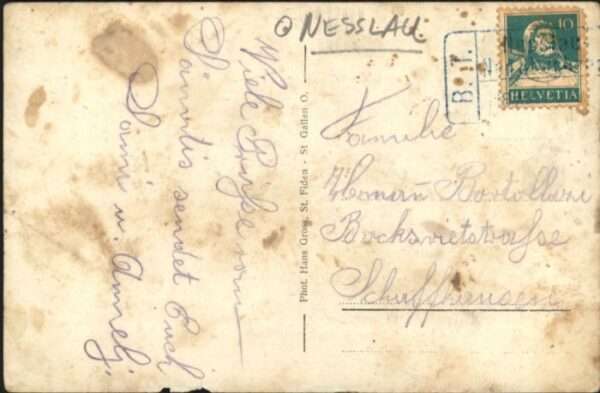 NESSLAU.
10
HELVETIA
B. T.
Viele Grüße vom
Säntis sendet Euch
Sami u. Anneli
Phot. Hans Gross, St. Fiden - St Gallen O.
Familie
Hermann Bortolluzi
Bocksrietstrasse
Schaffhausen